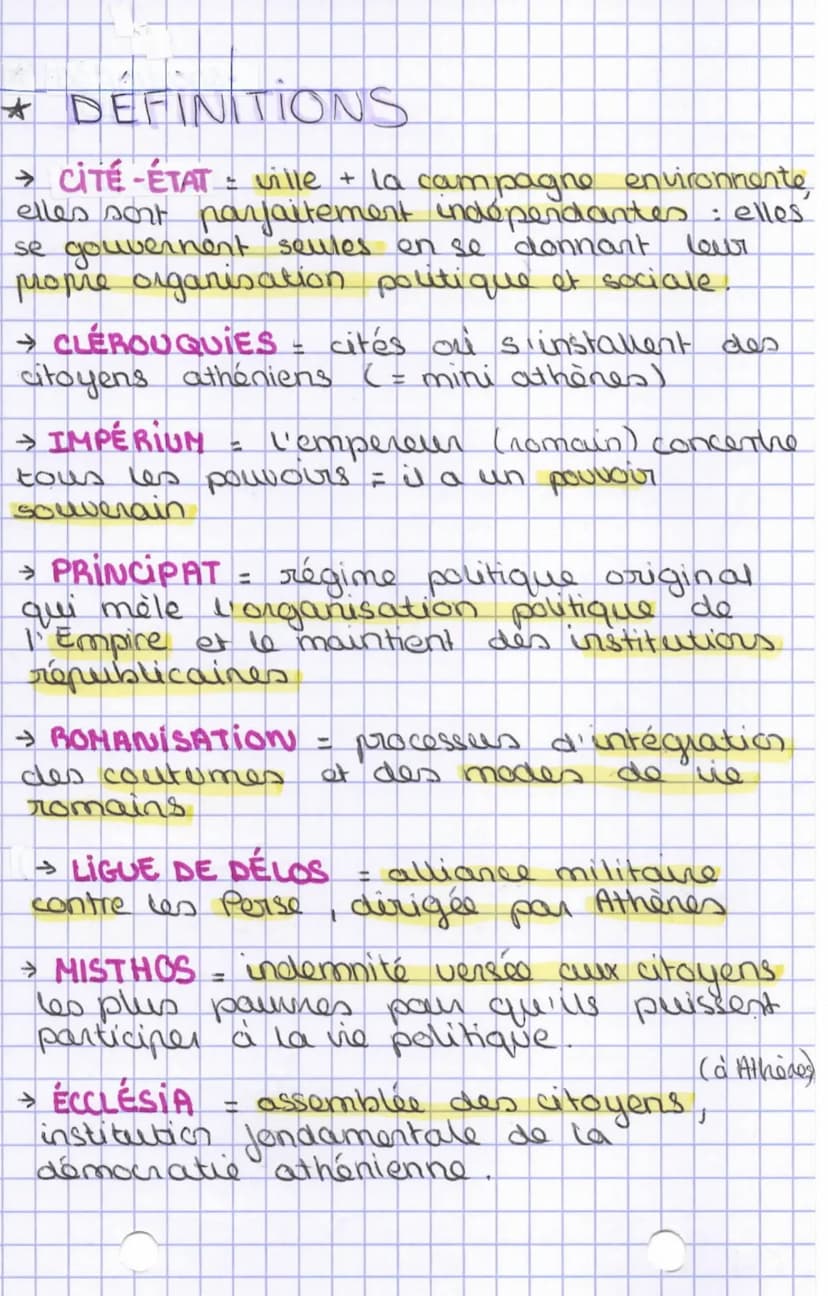 ★ DÉFINITIONS
→ CITÉ-ÉTAT = ville + la campagne environnante,
elles sont parfaitement indépendantes : elles
se gouvernent seules en se donnant leur
propre organisation politique et sociale.
→ CLÉROUQUIES = cités où s'installent des
citoyens athéniens (= mini athènes)
→ IMPÉRIUM = l'empereur (romain) concentre
tous les pouvoirs = il a un pouvoir
souverain
→ PRINCIPAT = régime politique original
qui mêle l'organisation politique de
l'Empire et le maintient des institutions
républicaines
→ ROMANISATION = processus d'intégration
des coutumes et des modes de vie
romains
→ LIGUE DE DÉLOS = alliance militaire
contre les Perse, dirigée par Athènes
→ MISTHOS = indemnité versée aux citoyens
les plus pauvres pour qu'ils puissent
participer à la vie politique.
(à Athènes)
→ ÉCCLÉSIA = assemblée des citoyens,
institution fondamentale de la
démocratie athénienne.